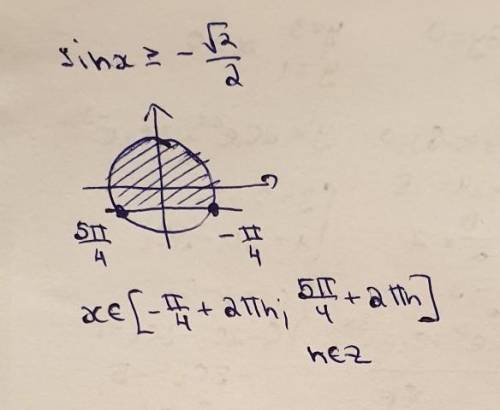 sinx ≥ -√2/2
5π/4
-π/4
x∈[-π/4 + 2πn; 5π/4 + 2πn]
n∈Z